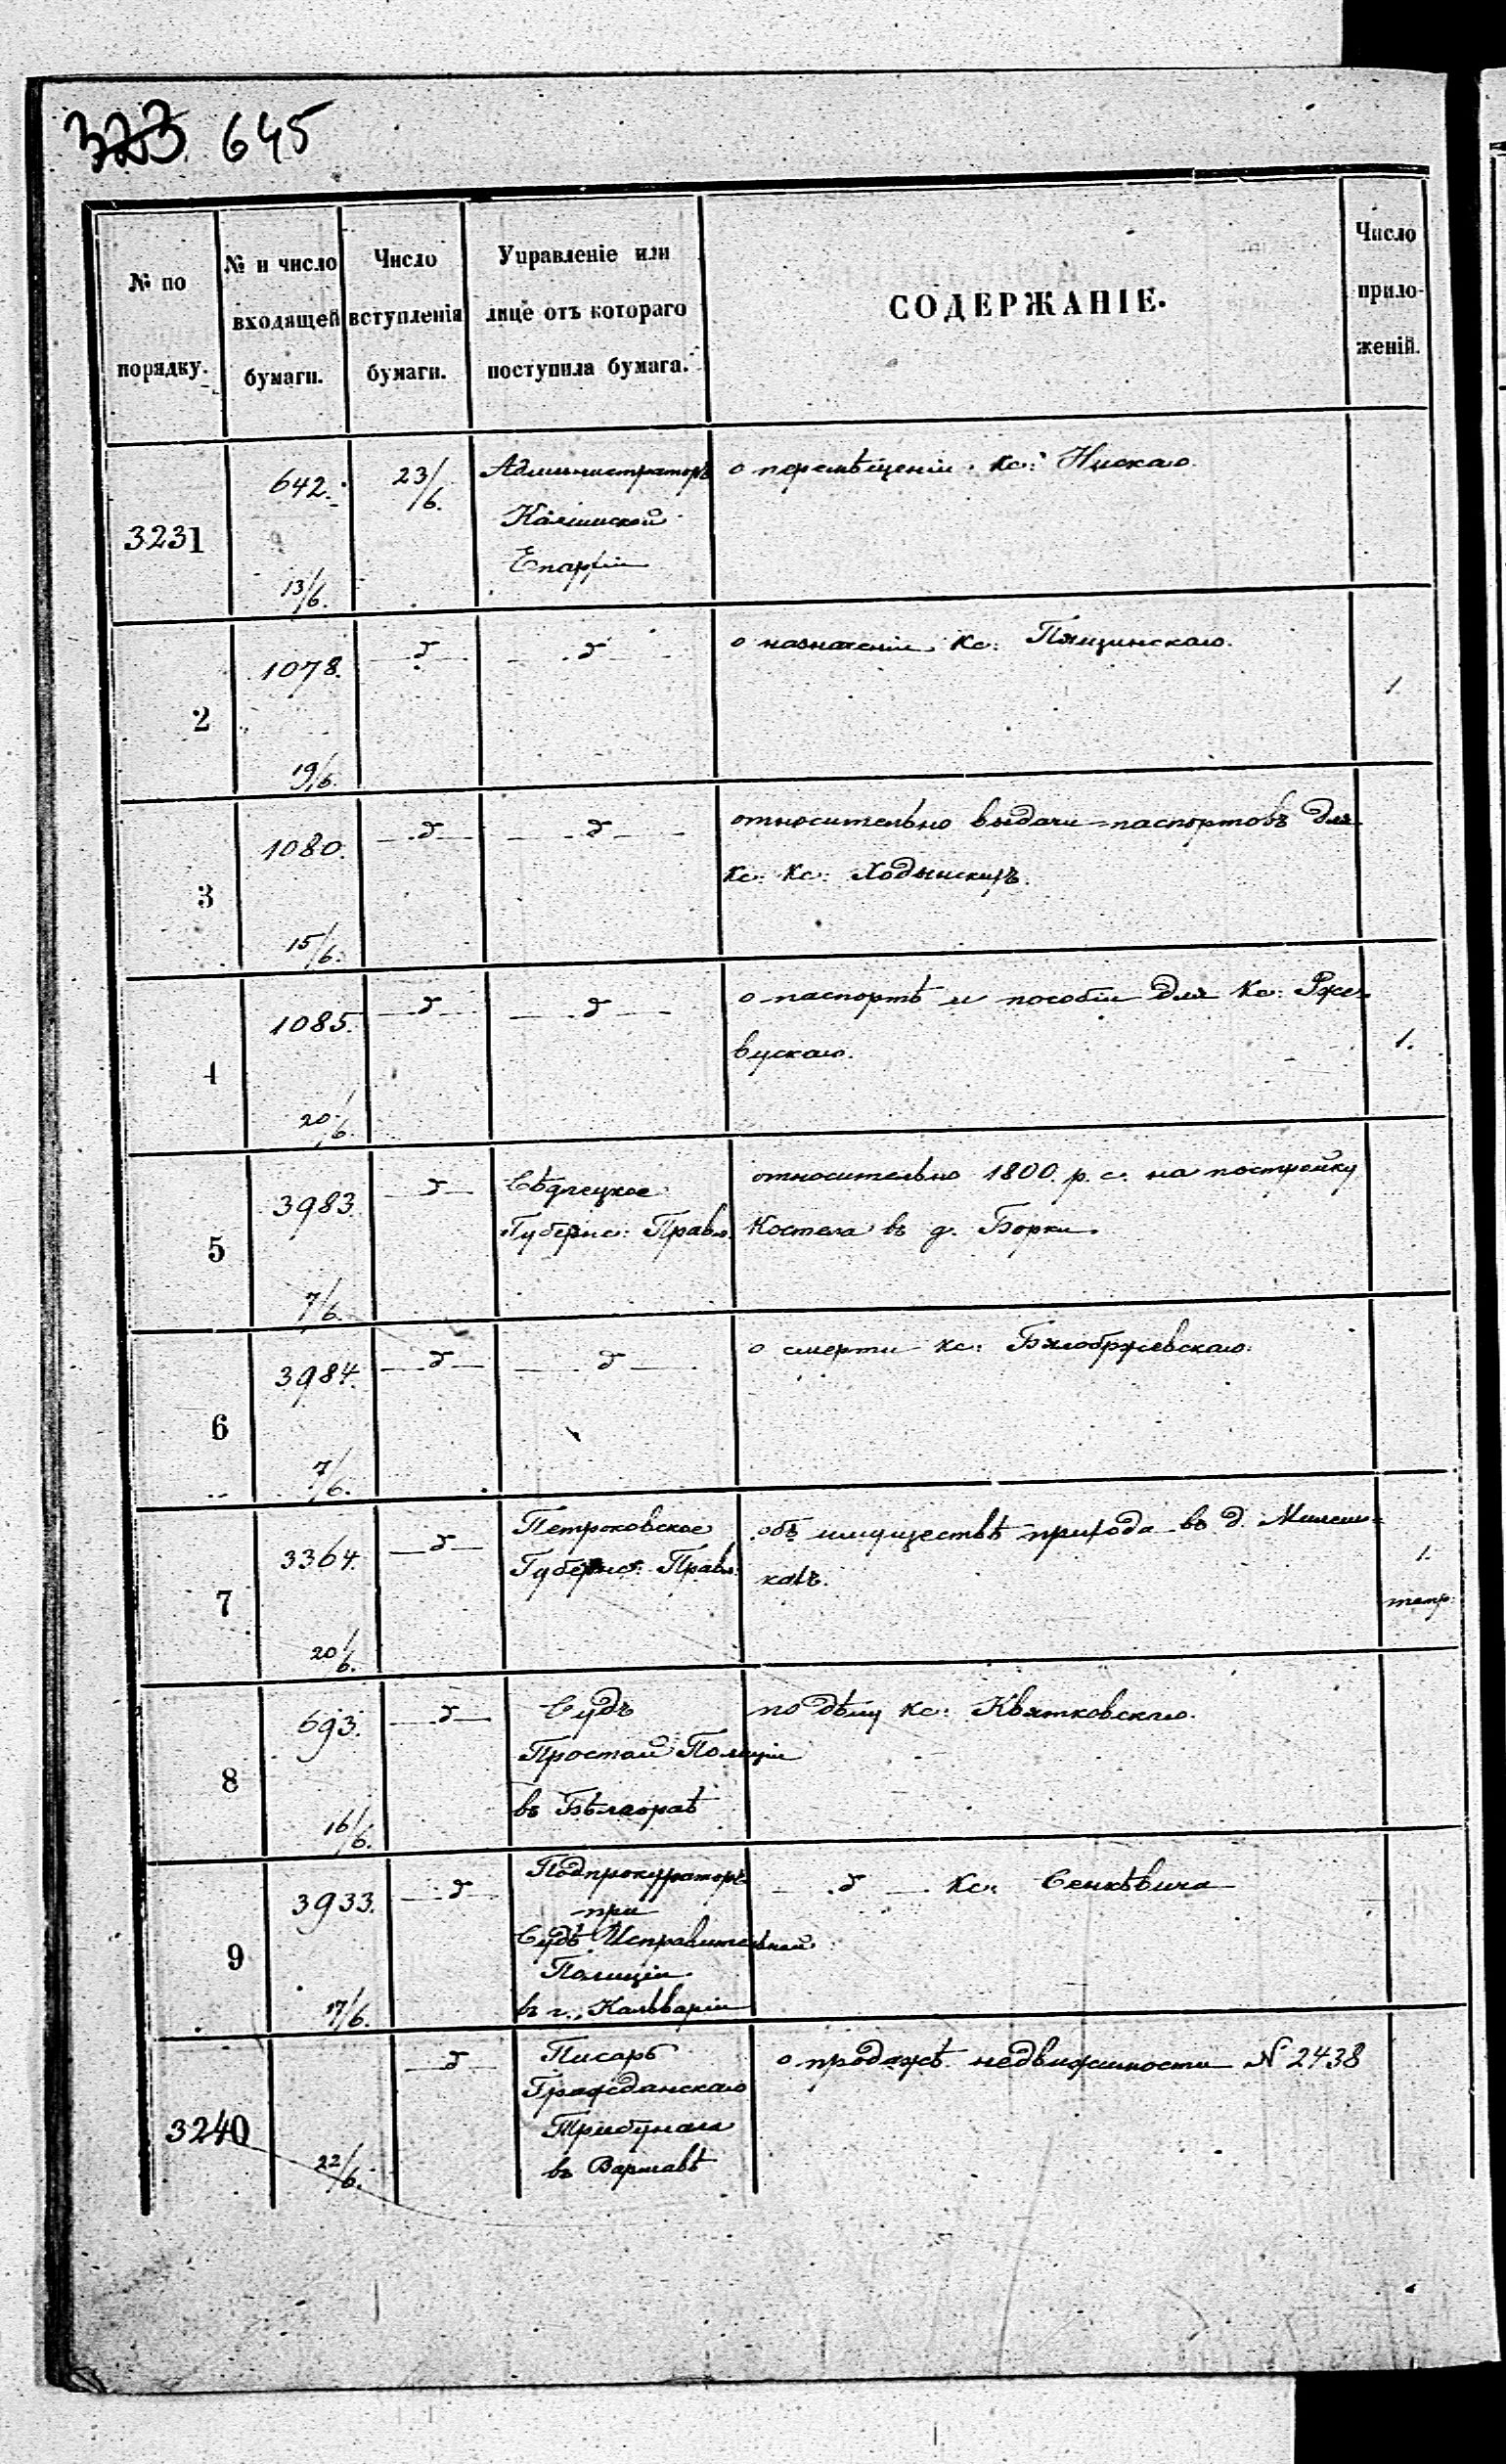 323 645
№ по порядку.
№ и число входящей бумаги.
Число вступленія бумаги.
Управленіе или лице отъ котораго поступила бумага.
СОДЕРЖАНІЕ.
Число приложеній.
3231
642.
13/6.
23/6.
Администраторъ
Калишской
Епархіи
о перемѣщеніи кс: Нискаго.
2
1078.
19/6.
—д—
—д—
о назначеніи кс:
1
3
1080.
15/6.
—д—
—д—
относительно выдачи паспортовъ для
кс: кс: Ходынскихъ.
4
1085.
20/6.
—д—
—д—
о паспортѣ и пособіи для Кс: Рже-
вускаго.
1.
5
3983.
7/6.
—д—
Сѣдлецкое
Губернс: Правл.
относительно 1800. р. с. на постройку
Костела въ д. Борки.
6
3984.
7/6.
—д—
—д—
о смерти кс: Бялобржевскаго.
7
3364.
20/6.
—д—
Петроковское
Губернс: Правл.
объ имуществѣ прихода въ д. Милеш-
кахъ.
1.
тетр.
8
693.
16/6.
—д—
Судъ
Простой Полиціи
въ Бѣлгораѣ
по дѣлу кс: Квятковскаго.
9
3933.
17/6.
—д—
Подпрокураторъ
при
Судѣ Исправительной
Полиціи
въ г. Кальваріи
—д— Кс: Сенкѣвича
3240
22/6.
—д—
Писарь
Гражданскаго
Трибунала
въ Варшавѣ
о продажѣ недвижимости N 2438